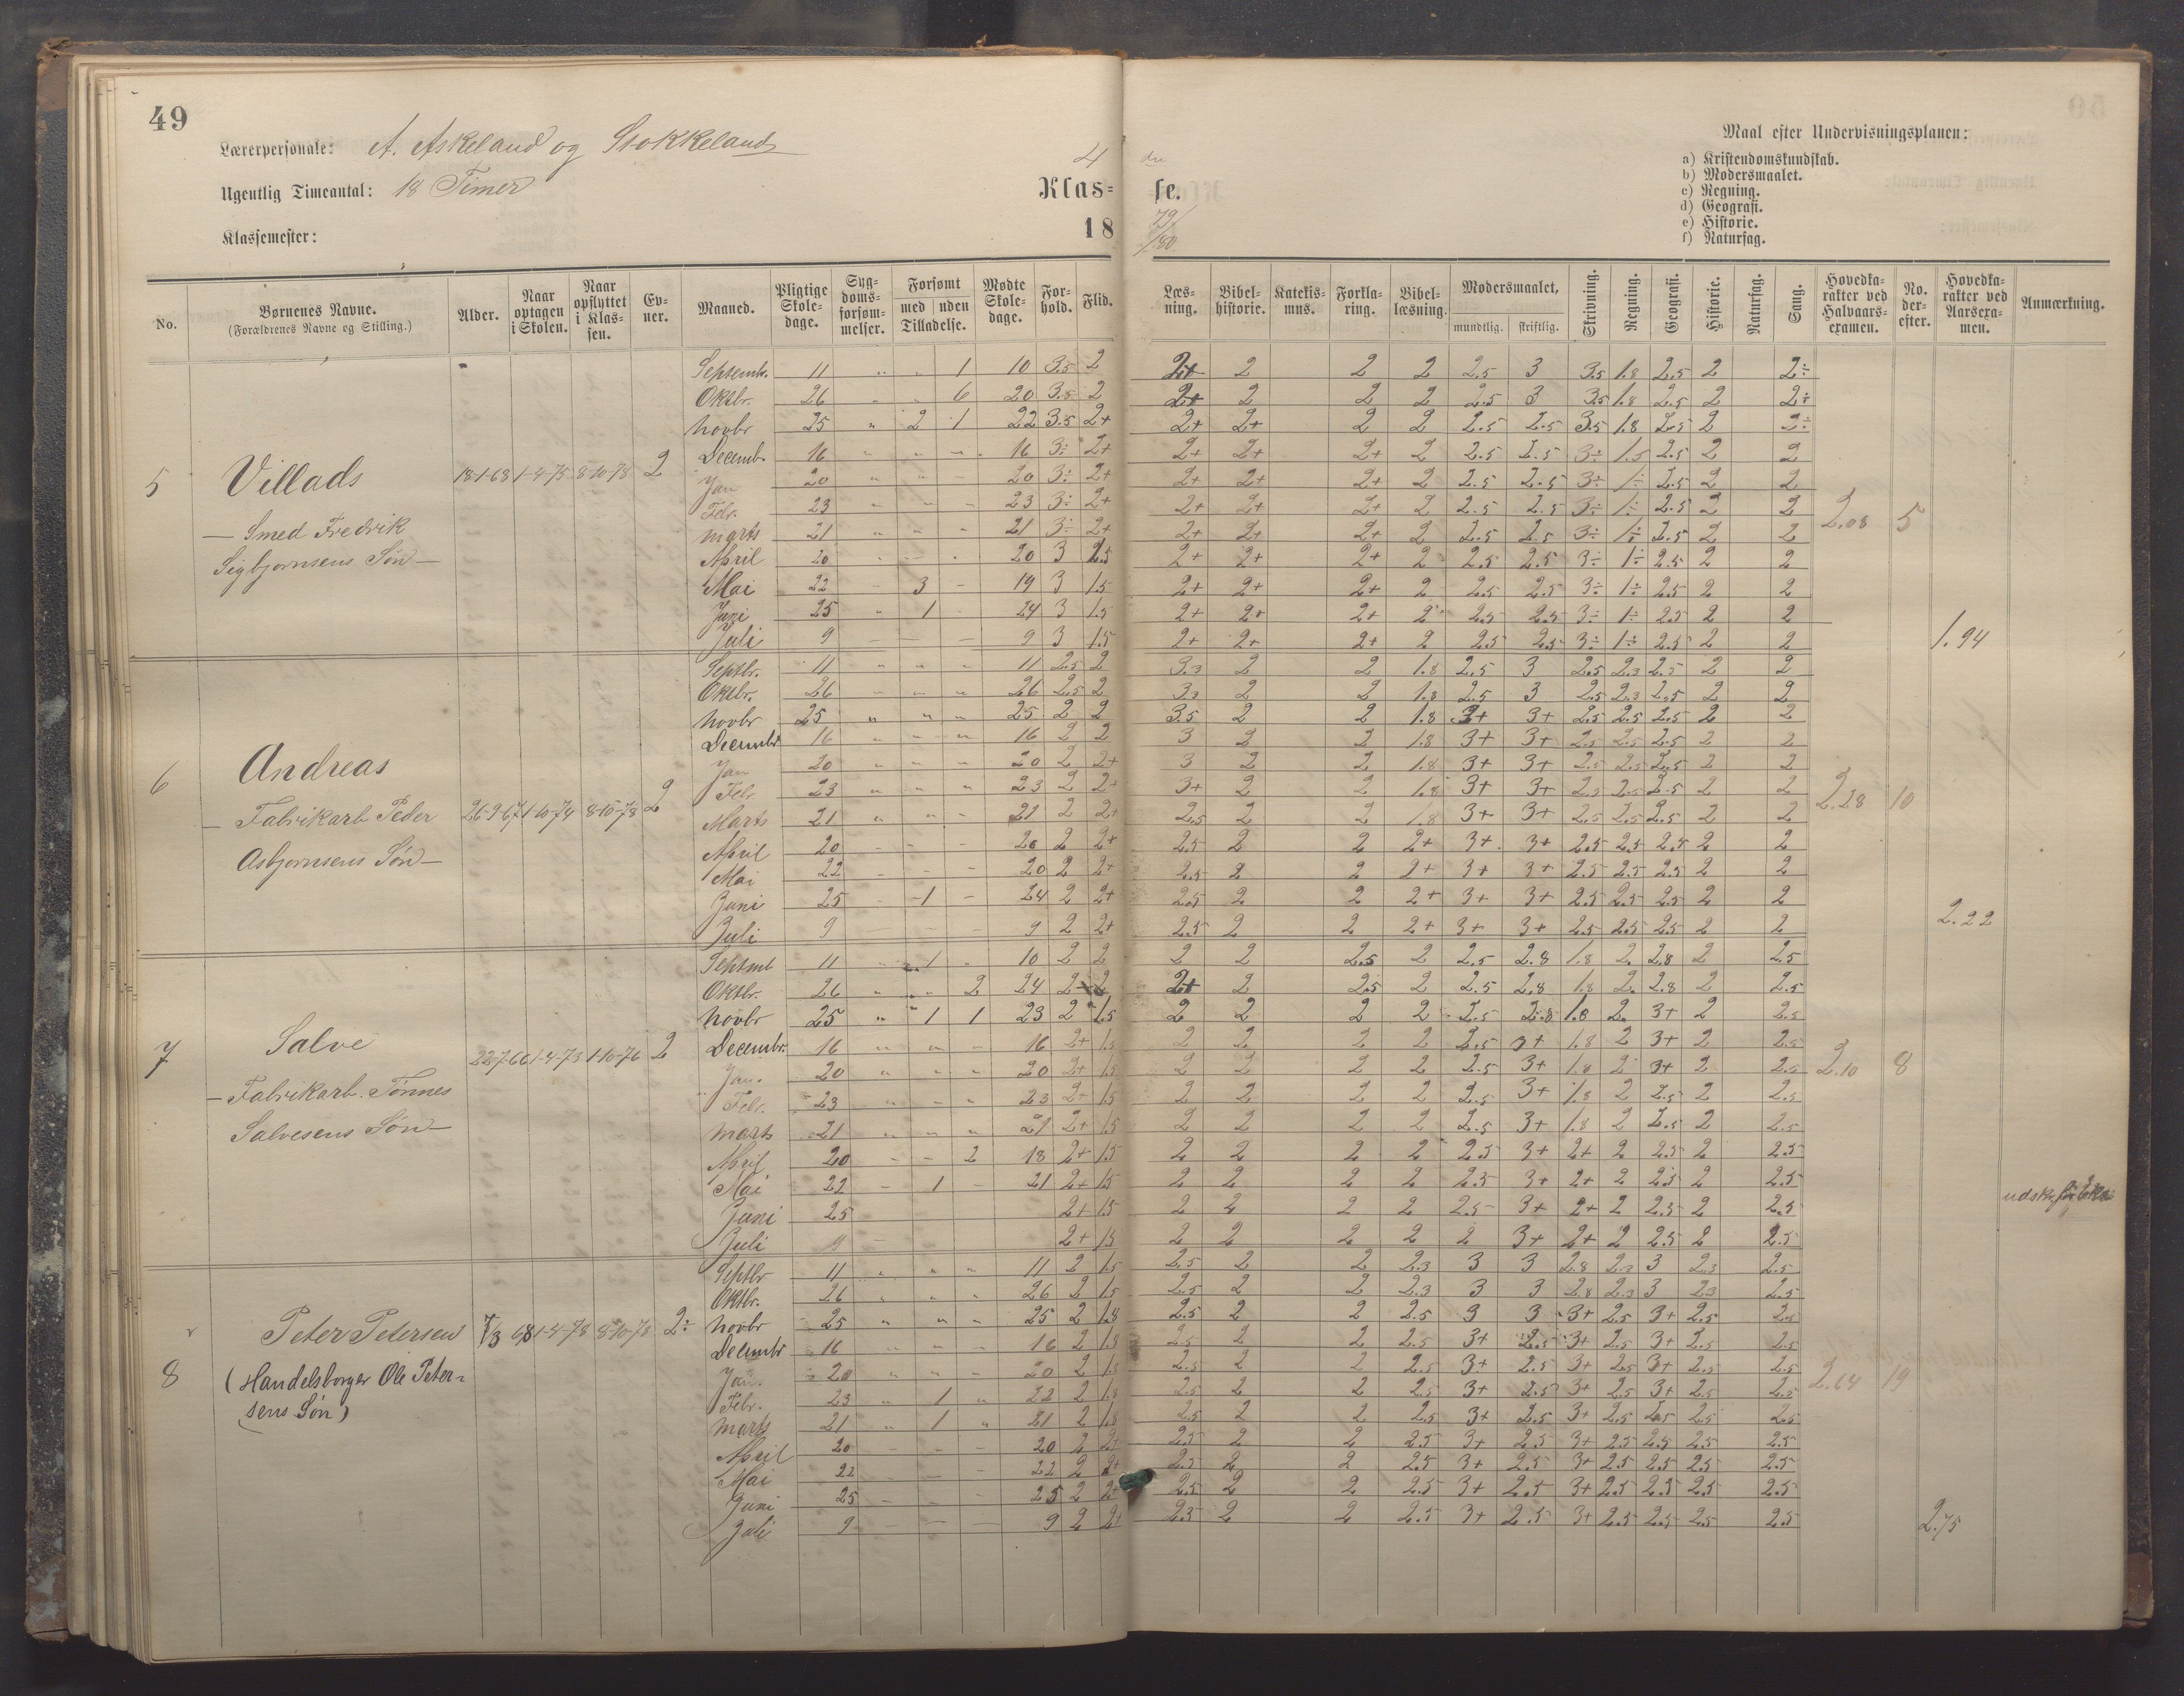 49
Lærerpersonale: A. Askeland og Stokkeland
Ugentlig Timeantal: 18 Timer
Klassemester:
4 de
Klas= se.
18 79/80
Maal efter Undervisningsplanen:
a) Kristendomskundskab.
b) Modersmaalet.
c) Regning.
d) Geografi.
e) Historie.
f) Naturfag.
No. Børnenes Navne. (Forældrenes Navne og Stilling.) Alder. Naar optagen i Skolen. Naar opflyttet i Klassen. Evner. Maaned. Pligtige Skoledage. Sygdomsforsømmelser. Forsømt med uden Tilladelse. Mødte Skoledage. Forhold. Flid. Læsning. Bibelhistorie. Katekismus. Forklaring. Bibellæsning. Modersmaalet, mundtlig. skriftlig. Skrivning. Regning. Geografi. Historie. Naturfag. Sang. Hovedkarakter ved Halvaarsexamen. No. derefter. Hovedkarakter ved Aarsexamen. Anmærkning.
5 Villads
— Smed Fredrik
Sigbjørnsens Søn —
18-1-68 1-4-75 8-10-78 2
Septembr. 11 " " 1 10 3.5 2 2+ 2 2 2 2.5 3 3.5 1.8 2.5 2 2÷
Oktbr. 26 " " 6 20 3.5 2 2+ 2 2 2 2.5 3 3.5 1.8 2.5 2 2÷
Novbr 25 " 2 1 22 3.5 2+ 2+ 2+ 2 2 2.5 2.5 3.5 1.8 2.5 2 2÷
Decemb. 16 " " " 16 3÷ 2+ 2+ 2+ 2+ 2 2.5 2.5 3÷ 1.5 2.5 2 2
Jan 20 " " " 20 3÷ 2+ 2+ 2+ 2+ 2 2.5 2.5 3÷ 1÷ 2.5 2 2
Febr. 23 " " " 23 3÷ 2+ 2+ 2+ 2+ 2 2.5 2.5 3÷ 1÷ 2.5 2 2
2.08 5
Marts 21 " " " 21 3÷ 2+ 2+ 2+ 2+ 2 2.5 2.5 3÷ 1÷ 2.5 2 2
April 20 - - - 20 3 1.5 2+ 2+ 2+ 2 2.5 2.5 3÷ 1÷ 2.5 2 2
Mai 22 - 3 - 19 3 1.5 2+ 2+ 2+ 2 2.5 2.5 3÷ 1÷ 2.5 2 2
Juni 25 " 1 - 24 3 1.5 2+ 2+ 2+ 2 2.5 2.5 3÷ 1÷ 2.5 2 2
Juli 9 - - - 9 3 1.5 2+ 2+ 2+ 2 2.5 2.5 3÷ 1÷ 2.5 2 2
1.94
6 Andreas
— Fabrikarb Peder
Asbjørnsens Søn —
26-9-67 1-10-74 8-10-78 2
Septbr. 11 " " " 11 2.5 2 3.3 2 2 1.8 2.5 3 2.5 2.3 2.5 2 2
Oktbr. 26 " " " 26 2.5 2 3.3 2 2 1.8 2.5 3 2.5 2.3 2.5 2 2
Novbr 25 " " " 25 2 2 3.5 2 2 1.8 3+ 3+ 2.5 2.5 2.5 2 2
Decembr 16 " " " 16 2 2 3 2 2 1.8 3+ 3+ 2.5 2.5 2.5 2 2
Jan 20 " " " 20 2 2+ 3 2 2 1.8 3+ 3+ 2.5 2.5 2.5 2 2
Febr 23 " " " 23 2 2+ 3+ 2 2 1.8 3+ 3+ 2.5 2.5 2.5 2 2
2.28 10
Marts 21 " " " 21 2 2+ 2.5 2 2 1.8 3+ 3+ 2.5 2.5 2.5 2 2
April 20 - - - 20 2 2+ 2.5 2 2 2+ 3+ 3+ 2.5 2.5 2.5 2 2
Mai 22 - - - 20 2 2+ 2.5 2 2 2+ 3+ 3+ 2.5 2.5 2.5 2 2
Juni 25 - 1 - 24 2 2+ 2.5 2 2 2+ 3+ 3+ 2.5 2.5 2.5 2 2
Juli 9 - - - 9 2 2+ 2.5 2 2 2+ 3+ 3+ 2.5 2.5 2.5 2 2
2.22
7 Salve
— Fabrikarb. Tønnes
Salvesens Søn —
22-7-66 1-4-73 1-10-76 2
Septmb 11 " 1 " 10 2 2 2 2 2.5 2 2.5 2.8 1.8 2 2.8 2 2.5
Oktbr. 26 " " 2 24 2 2 2+ 2 2.5 2 2.5 2.8 1.8 2 2.8 2 2.5
Novbr 25 " 1 1 23 2 1.5 2 2 2 2 2.5 2.8 1.8 2 3+ 2 2.5
Decembr. 16 " " " 16 2+ 1.5 2 2 2 2 2.5 3+ 1.8 2 3+ 2 2.5
Jan. 20 " " " 20 2+ 1.5 2 2 2 2 2.5 3+ 1.8 2 3+ 2 2.5
2.10 8
Febr. 23 " " " 23 2+ 1.5 2 2 2 2 2.5 3+ 1.8 2 2.5 2 2.5
Marts 21 " " " 21 2+ 1.5 2 2 2 2 2.5 3+ 1.8 2 2.5 2 2.5
April 20 - - 2 18 2+ 1.5 2 2 2 2 2.5 3+ 2+ 2 2.5 2 2.5
Mai 22 - 1 - 21 2+ 1.5 2 2 2 2 2.5 3+ 2+ 2 2.5 2 2.5
Juni 25 2+ 1.5 2 2 2 2 2.5 3+ 2+ 2 2.5 2 2.5
Juli 9 - 2+ 1.5 2 2 2 2 2 3+ 2+ 2 2.5 2 2.5
8 Peter Petersen
(Handelsborger Ole Peter=
sens Søn)
7/3 68 1-4-78 8-10-78 2÷
Septbr 11 " " " 11 2 1.5 2.5 2 2 2.3 3 3 2.8 2.3 3 2.3 2.5
Oktbr. 26 " " " 26 2 1.5 2.5 2 2 2.3 3 3 2.8 2.3 3 2.3 2.5
Novbr 25 " " " 25 2 1.8 2.5 2 2 2.5 3 3 3+ 2.5 3+ 2.5 2.5
Decembr 16 " " " 16 2 1.8 2.5 2 2 2.5 3+ 2.5 3+ 2.5 3+ 2.5 2.5
Jan. 20 " " " 20 2 1.8 2.5 2 2 2.5 3+ 2.5 3+ 2.5 3+ 2.5 2.5
2.64 19
Febr. 23 " 1 " 22 2 1.8 2.5 2 2 2.5 3+ 2.5 3+ 2.5 3+ 2.5 2.5
Marts 21 " 1 " 21 2 1.8 2.5 2 2 2.5 3+ 2.5 3+ 2.5 2.5 2.5 2.5
April 20 - - - 20 2 2+ 2.5 2 2 2.5 3+ 2.5 3+ 2.5 2.5 2.5 2.5
Mai 22 - - - 22 2 2+ 2.5 2 2 2.5 3+ 2.5 3+ 2.5 2.5 2.5 2.5
Juni 25 - - - 25 2 2+ 2.5 2 2 2.5 3+ 2.5 3+ 2.5 2.5 2.5 2.5
Juli 9 - - - 9 2 2+ 2.5 2 2 2.5 3+ 2.5 3+ 2.5 2.5 2.5 2.5
2.75